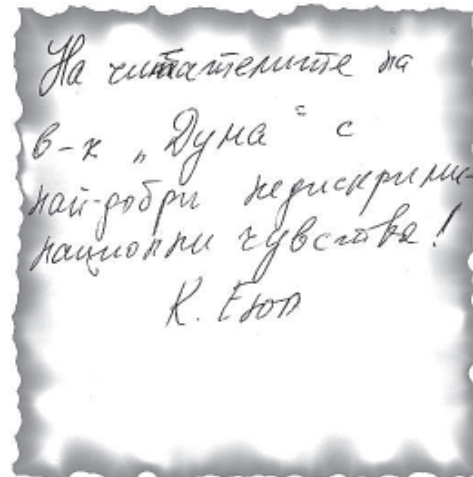 На читателите на
в-к „Дума“ с
най-добри недискрими-
национни чувства!
К. Езоп